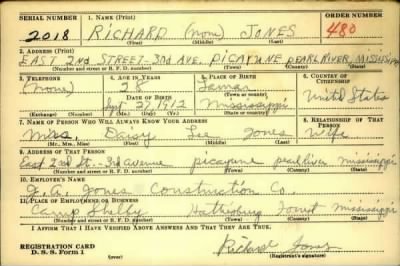 SERIAL NUMBER 1. NAME (Print) ORDER NUMBER
2018 RICHARD (none) JONES 480
(First) (Middle) (Last)
2. ADDRESS (Print)
EAST 2nd STREET-3rd AVE. PICAYUNE PEARL RIVER, MISSISSIPPI
(Number and street or R. F. D. number) (Town) (County) (State)
3. TELEPHONE 4. AGE IN YEARS 5. PLACE OF BIRTH 6. COUNTRY OF CITIZENSHIP
(None) 28 Lamar
DATE OF BIRTH (Town or county)
Sept 27 1912 Mississippi United States
(Exchange) (Number) (Mo.) (Day) (Yr.) (State or country)
7. NAME OF PERSON WHO WILL ALWAYS KNOW YOUR ADDRESS 8. RELATIONSHIP OF THAT PERSON
Mrs. Daisy Lee Jones Wife
(Mr., Mrs., Miss) (First) (Middle) (Last)
9. ADDRESS OF THAT PERSON
East 2nd St.-3rd avenue picayune pearl River mississippi
(Number and street or R. F. D. number) (Town) (County) (State)
10. EMPLOYER'S NAME
J. A. Jones Construction Co.
11. PLACE OF EMPLOYMENT OR BUSINESS
Camp Shelby Hattiesburg Forrest Mississippi
(Number and street or R. F. D. number) (Town) (County) (State)
I AFFIRM THAT I HAVE VERIFIED ABOVE ANSWERS AND THAT THEY ARE TRUE.
REGISTRATION CARD
D. S. S. Form 1 (over) Richard Jones
(Registrant's signature)